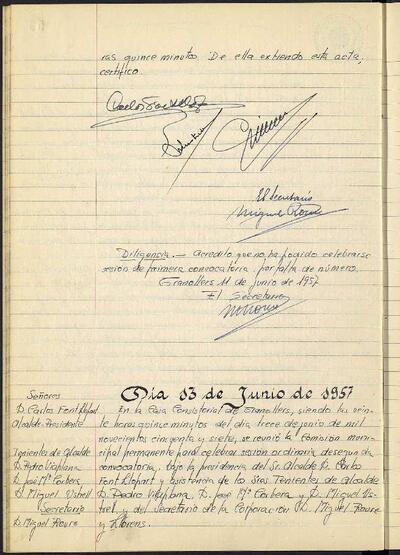 ras quince minutos. De ella extiendo esta acta,
certifico.
El Secretario
Miguel Roure
Diligencia.— Acredito que no ha podido celebrarse
sesion de primera convocatoria por falta de número.
Granollers 11 de junio de 1957
El Secretario
Señores
D. Carlos Font Llopart
Alcalde-Presidente
Tenientes de Alcalde
D. Pedro Viaplana
D. José Mª Corbera
D. Miguel Ustrell
Secretario
D. Miguel Roure
Día 13 de Junio de 1957
En la Casa Consistorial de Granollers, siendo las vein-
te horas quince minutos del dia trece de junio de mil
novecientos cincuenta y siete, se reunió la Comisión muni-
cipal permanente para celebrar sesion ordinaria de segunda
convocatoria, bajo la presidencia del Sr. Alcalde D. Carlos
Font Llopart y asistencia de los Sres Tenientes de Alcalde
D. Pedro Viaplana, D. José Mª Corbera y D. Miguel Us-
trell y del Secretario de la Corporacion D. Miguel Roure
y Llorens.